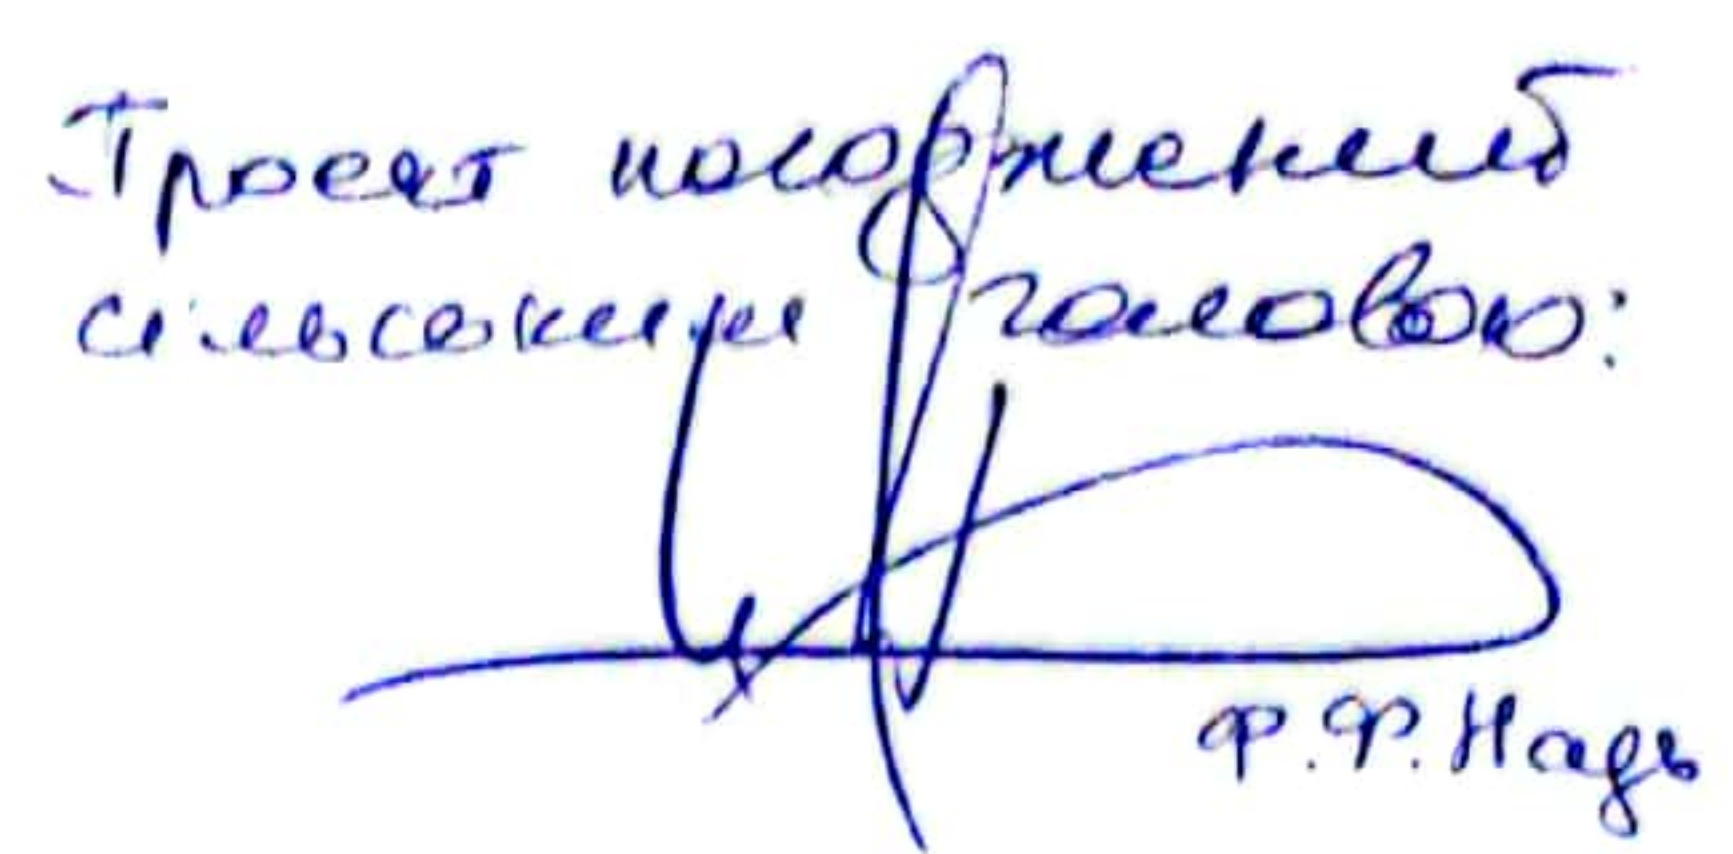 Проект погоджений
сільським головою:
Ф.Ф.Надь